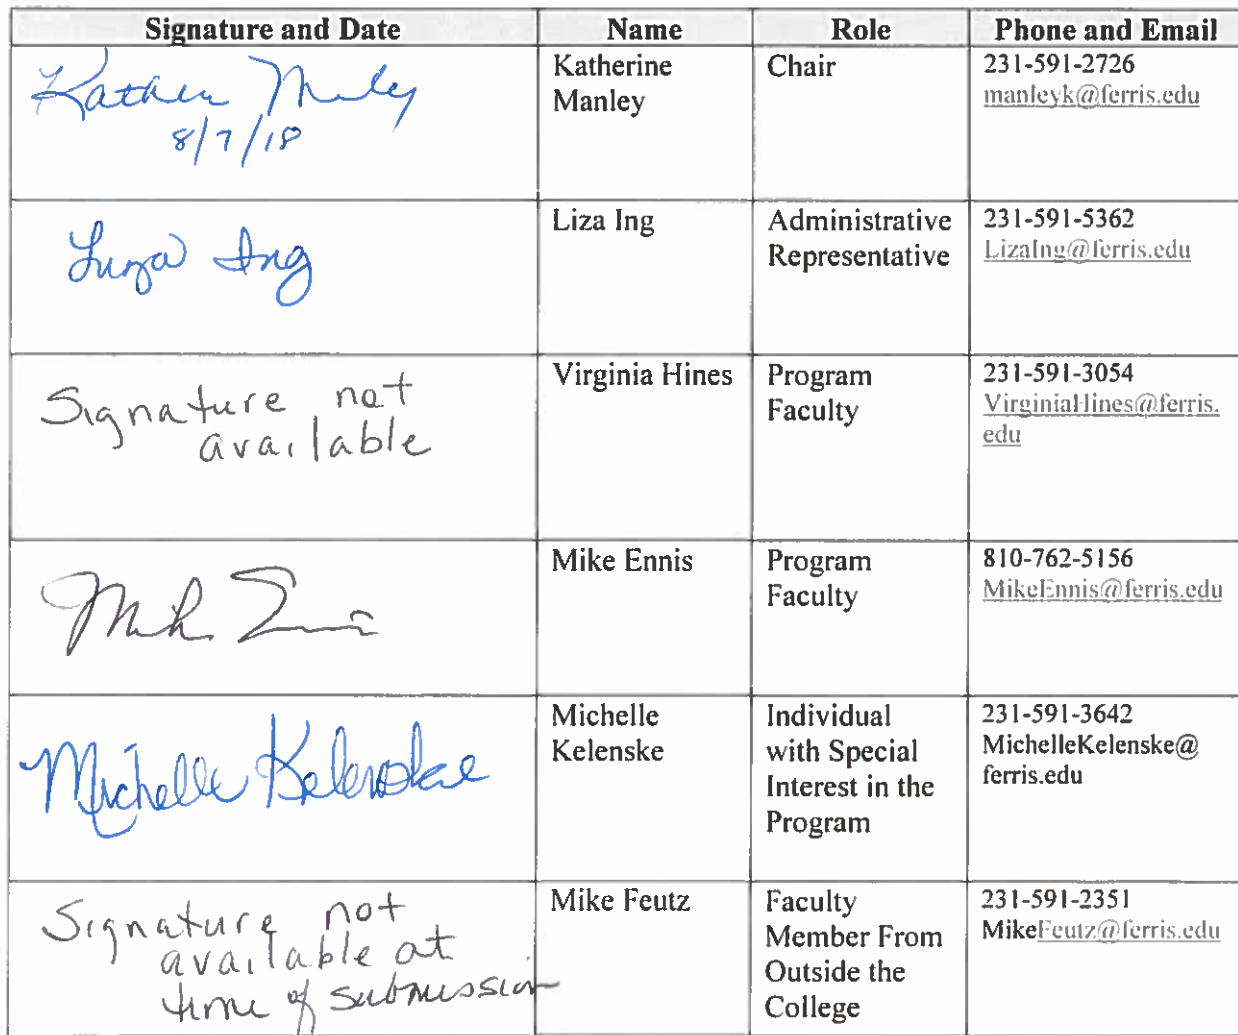 Signature and Date Name Role Phone and Email
Katherine Manley
8/7/18
Katherine
Manley
Chair
231-591-2726
manleyk@ferris.edu
Liza Ing
Liza Ing
Administrative
Representative
231-591-5362
LizaIng@ferris.edu
Signature not
available
Virginia Hines
Program
Faculty
231-591-3054
VirginiaHines@ferris.
edu
Mike Ennis
Mike Ennis
Program
Faculty
810-762-5156
MikeEnnis@ferris.edu
Michelle Kelenske
Michelle
Kelenske
Individual
with Special
Interest in the
Program
231-591-3642
MichelleKelenske@
ferris.edu
Signature not
available at
time of submission
Mike Feutz
Faculty
Member From
Outside the
College
231-591-2351
MikeFeutz@ferris.edu